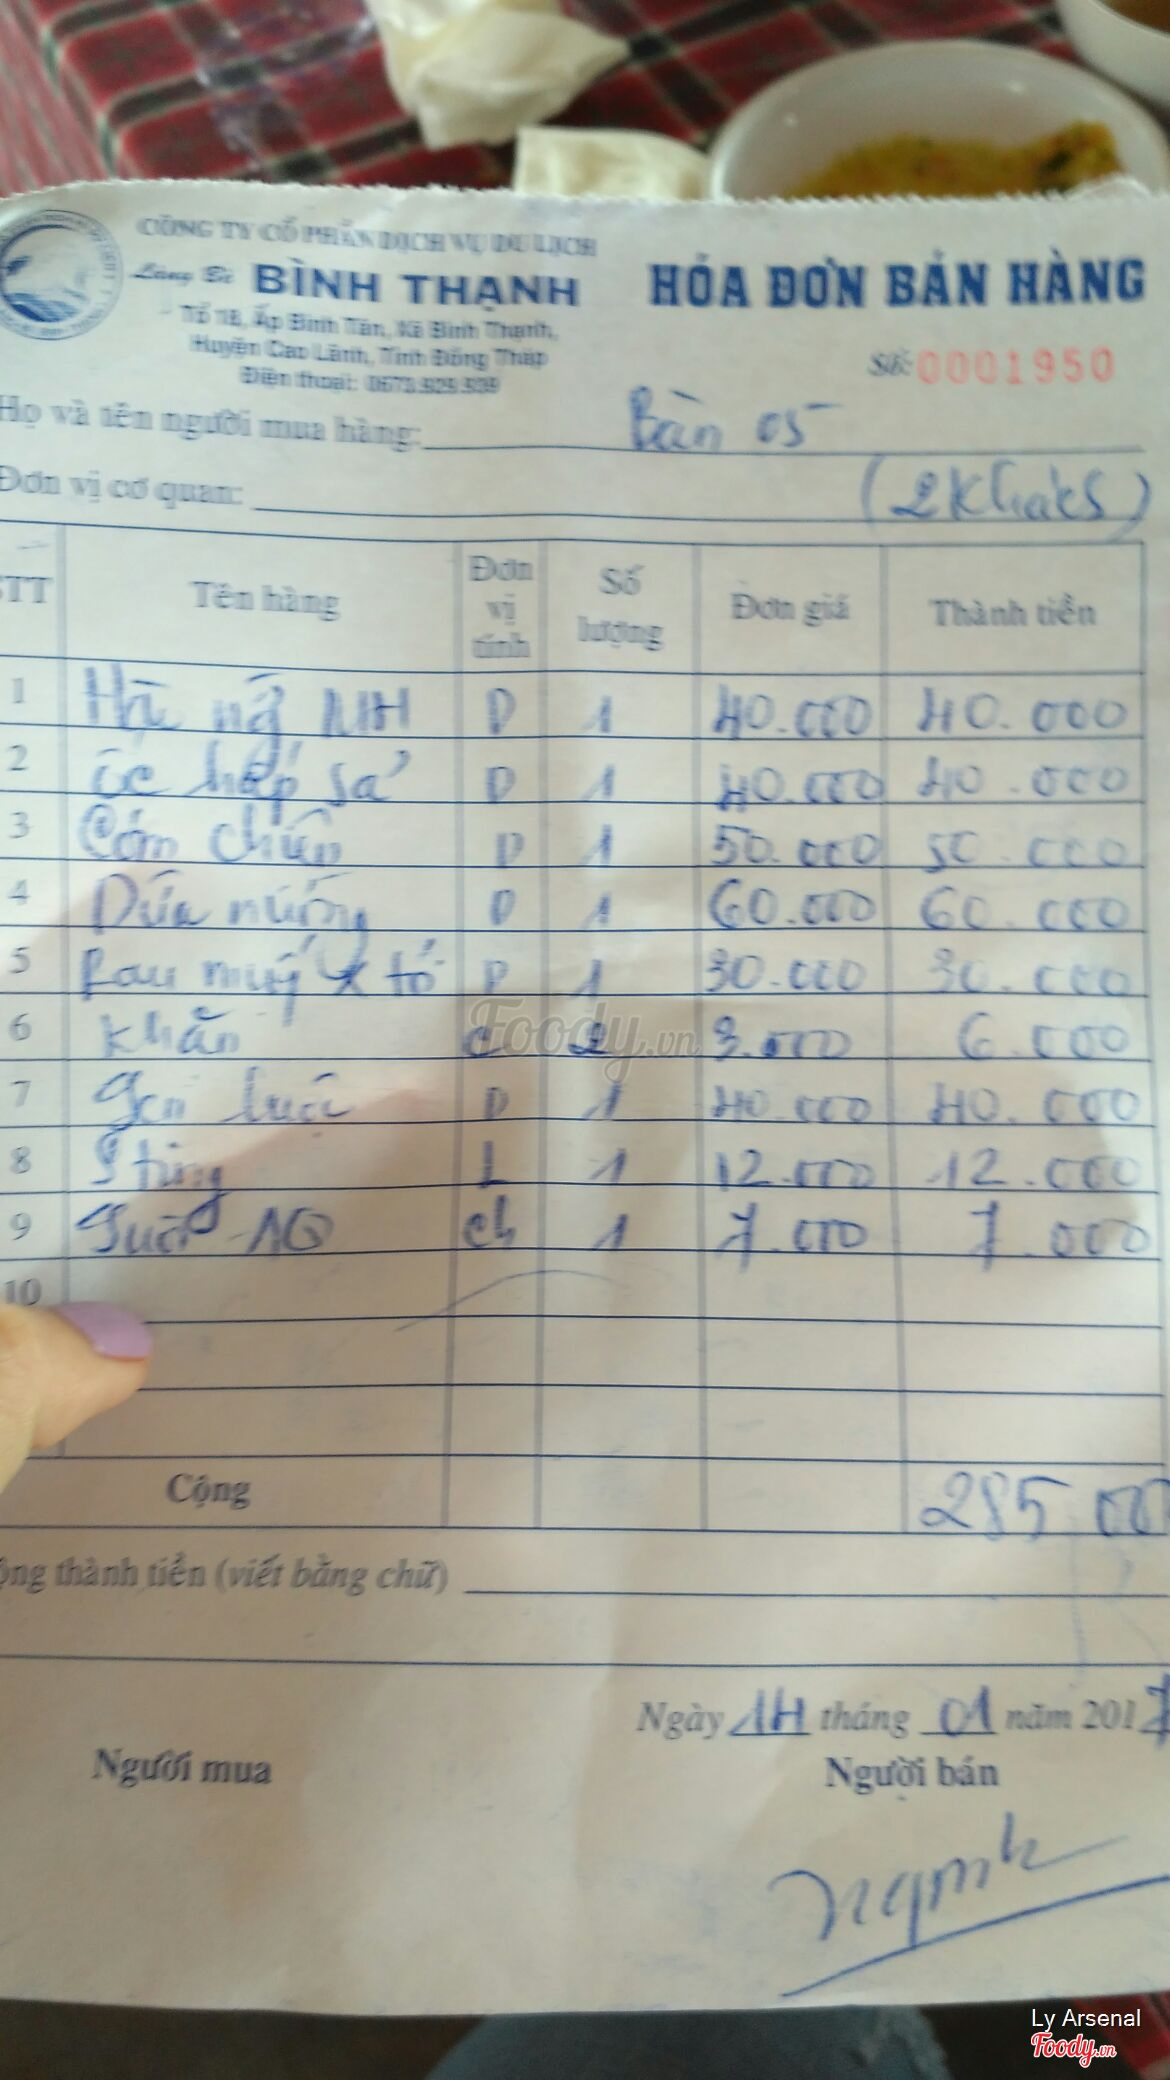 CÔNG TY CỔ PHẦN DỊCH VỤ DU LỊCH
Làng Bè BÌNH THẠNH
Tổ 18, Ấp Bình Tân, Xã Bình Thạnh,
Huyện Cao Lãnh, Tỉnh Đồng Tháp
Điện thoại: 0673.929.939
HÓA ĐƠN BÁN HÀNG
Số: 0001950
Họ và tên người mua hàng: Bàn 05
Đơn vị cơ quan: (2 khách)
STT Tên hàng Đơn vị tính Số lượng Đơn giá Thành tiền
1 MH D 1 40.000 40.000
2 ốc hấp sả D 1 40.000 40.000
3 Cơm chiên D 1 50.000 50.000
4 Dừa nướng D 1 60.000 60.000
5 Rau muống x tỏi D 1 30.000 30.000
6 Khăn C 2 3.000 6.000
7 luộc D 1 40.000 40.000
8 Sting L 1 12.000 12.000
9 ch 1 7.000 7.000
10
Cộng 285.000
ộng thành tiền (viết bằng chữ)
Ngày 14 tháng 01 năm 2017
Người mua Người bán
Foody.vn
Ly Arsenal
Foody.vn